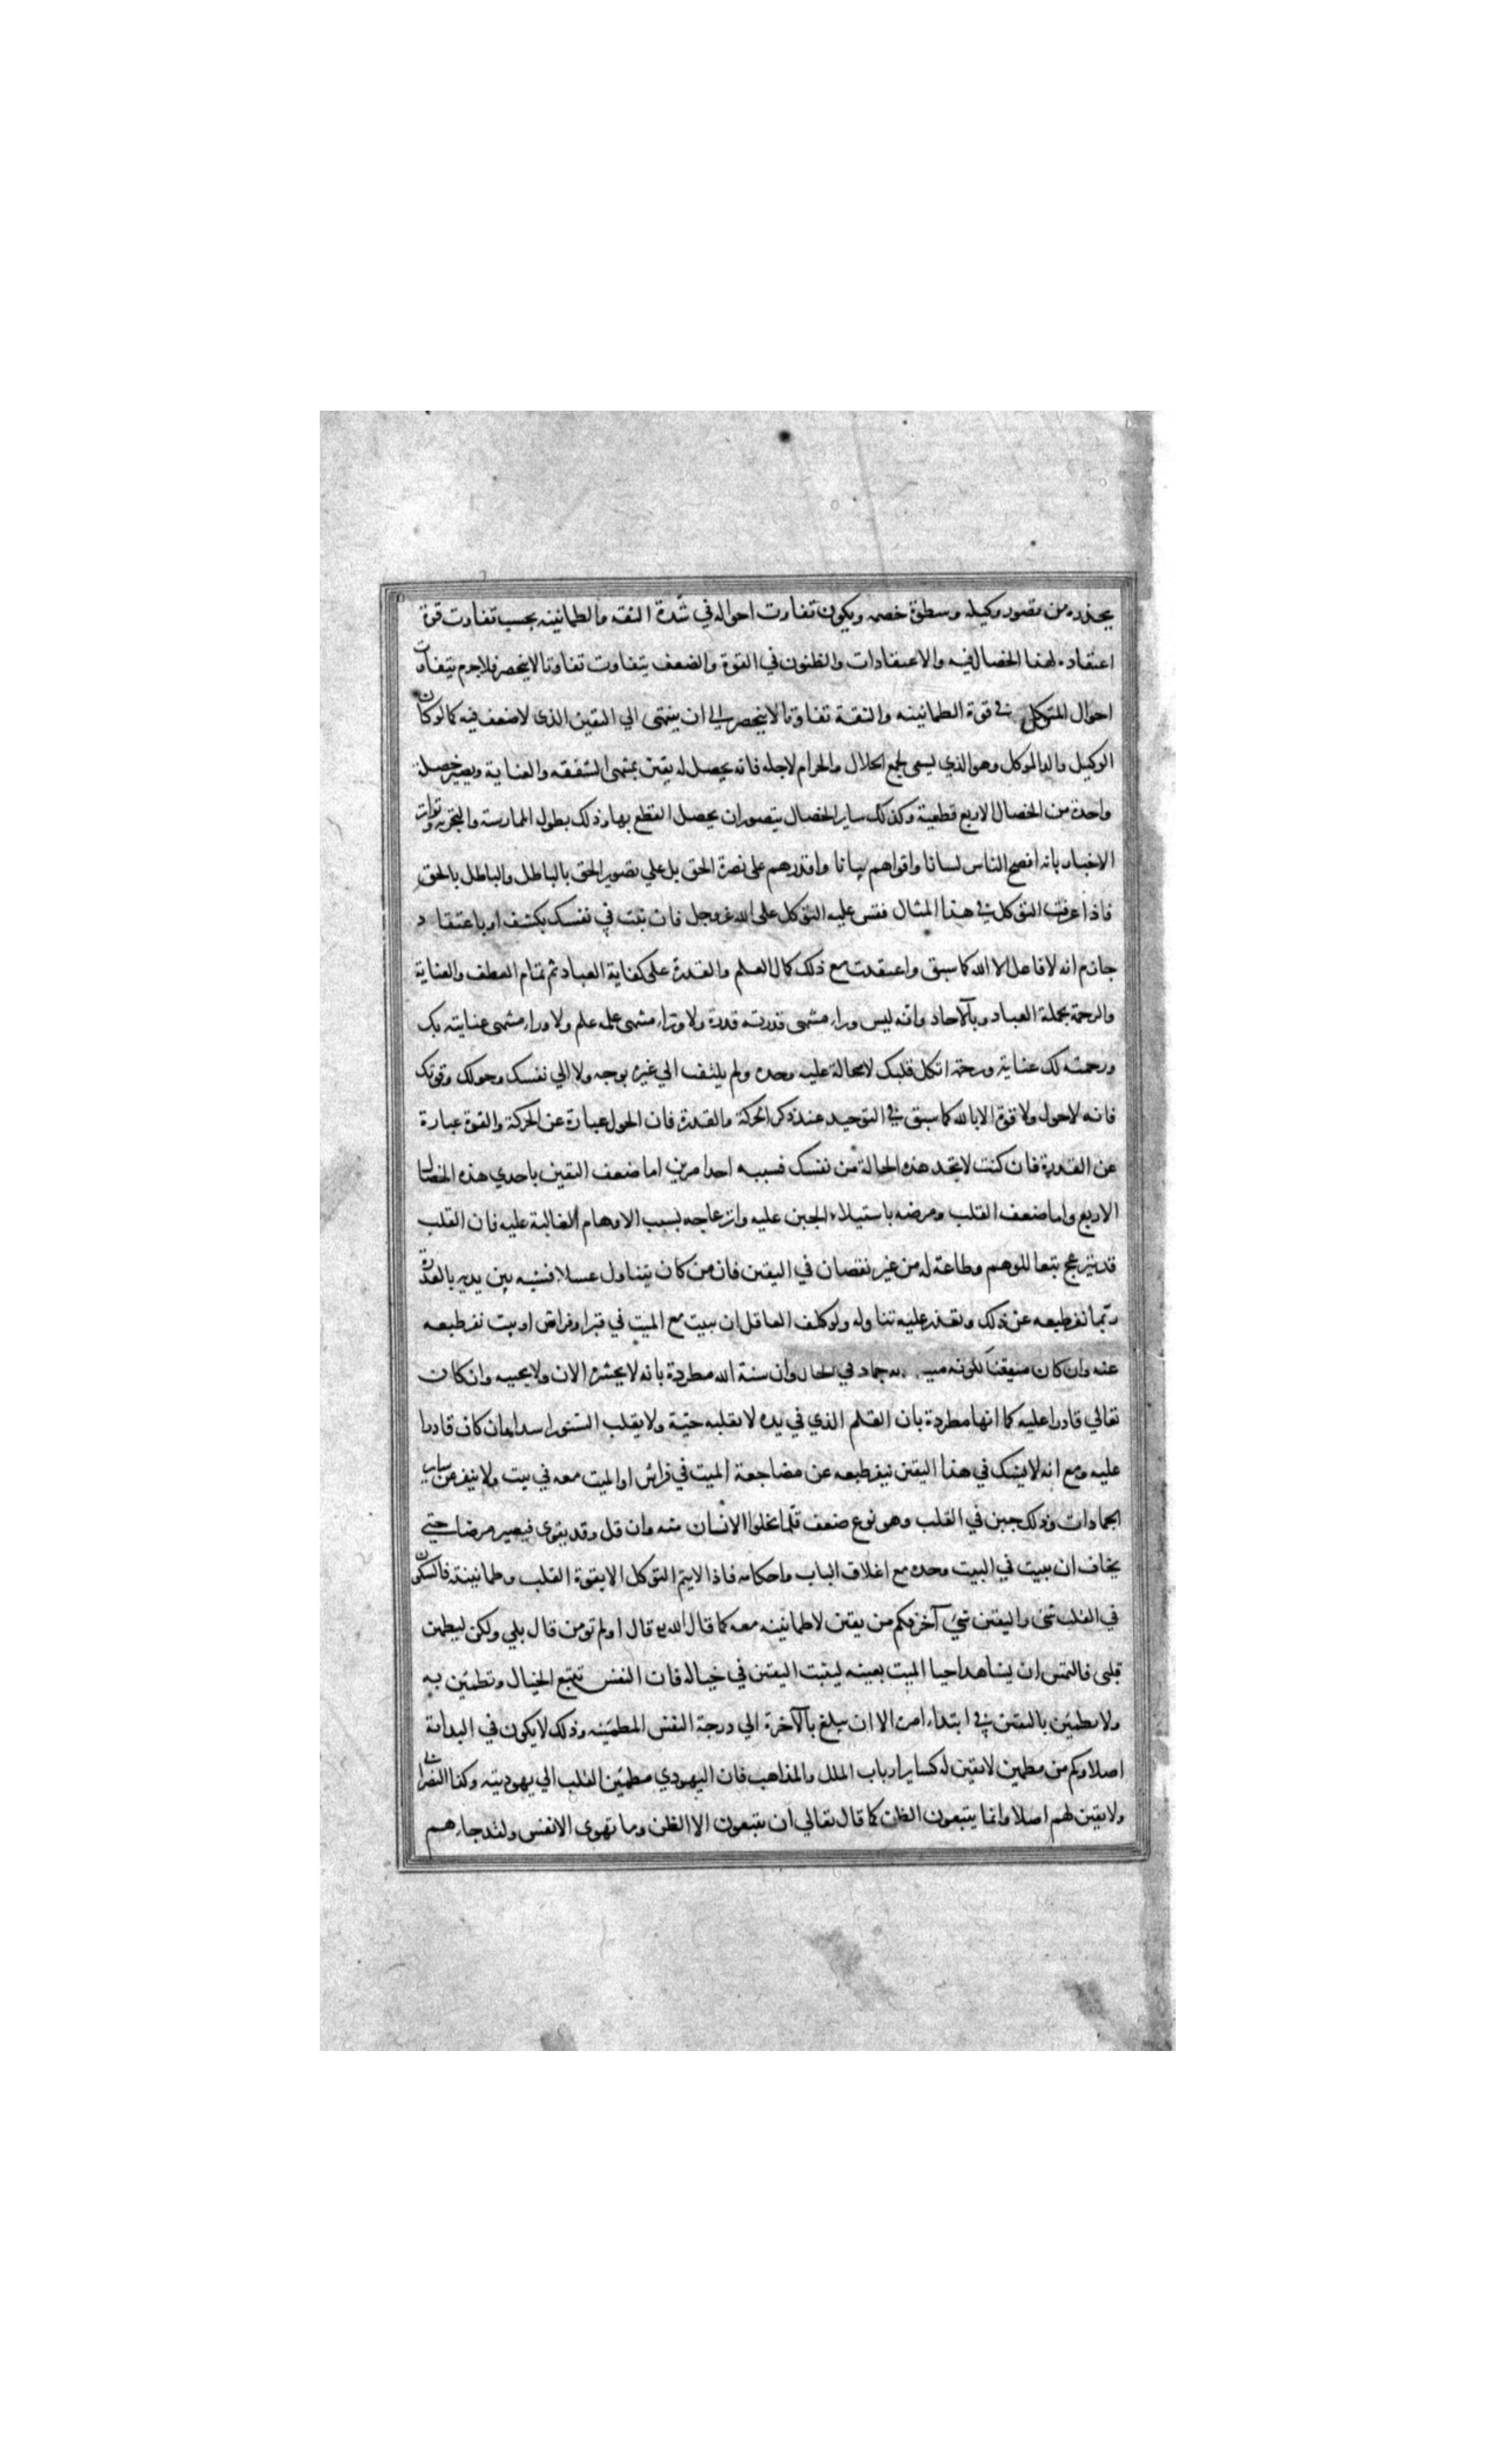 يحذره من قصور وكيله وسطوة خصمه ويكون تفاوت احواله في شدة الثقه والطمانينه بحسب تفاوت قوة
اعتقاده لهذا الخصال فيه والاعتقادات والظنون في القوة والضعف يتفاوت تفاوتا لا ينحصر فلا جرم يتفاوت
احوال المتوكل في قوة الطمانينه والثقة تفاوتا لا ينحصر الي ان ينتهى الي اليقين الذي لا ضعف فيه كما لوكان
الوكيل والد الموكل وهو الذي ليسعى لجمع الحلال والحرام لاجله فانه يحصل له يقين بمنتهى الشفقه والعناية ويصير خصلة
واحدة من الخصال الاربع قطعية وكذلك ساير الخصال يتصور ان يحصل القطع بها وذلك بطول الممارسة والتجربه وتواتر
الاخبار بانه افصح الناس لسانا واقواهم بيانا واقدرهم على نصرة الحق بل علي تصوير الحق بالباطل والباطل بالحق
فاذا عرفت التوكل في هذا المثال فقس عليه التوكل على الله عز وجل فان ثبت في نفسك بكشف او باعتقاد
جازم انه لا فاعل الا الله كما سبق واعتقدت مع ذلك كمال العلم والقدرة على كفاية العباد ثم تمام العطف والعناية
والرحمة بجملة العباد وبالآحاد وانه ليس وراء منتهى قدرته قدرة ولا وراء منتهى علمه علم ولا وراء منتهى عنايته بك
ورحمته لك عناية ورحمة اتكل قلبك لا محالة عليه وحده ولم يلتفت الي غيره بوجه ولا الي نفسك وحولك وقوتك
فانه لا حول ولا قوة الا بالله كما سبق في التوحيد عند ذكر الحركة والقدرة فان الحول عبارة عن الحركة والقوة عبارة
عن القدرة فان كنت لا تجد هذه الحالة من نفسك فسببه احد امرين اما ضعف اليقين باحدي هذه الخصال
الاربع واما ضعف القلب ومرضه باستيلاء الجبن عليه وانزعاجه بسبب الاوهام الغالبة عليه فان القلب
قد ينزعج تبعا للوهم وطاعة له من غير نقصان في اليقين فان من كان يتناول عسلا فشبه بين يديه بالعذرة
ربما نفر طبعه عن ذلك وتعذر عليه تناوله ولو كلف العاقل ان يبيت مع الميت في قبر او فراش او بيت نفر طبعه
عنه وان كان متيقنا لكونه جماد في الحال وان سنة الله مطردة بانه لا يحشره الان ولا يحييه وان كان
تعالي قادرا عليه كما انها مطردة بان القلم الذي في يده لا يقلبه حية ولا يقلب السنور اسدا وان كان قادرا
عليه ومع انه لا يشك في هذا اليقين ينفر طبعه عن مضاجعة الميت في فراش او الميت معه في بيت ولا ينفر من ساير
الجمادات وذلك جبن في القلب وهو نوع ضعف قلما يخلوا الانسان منه وان قل وقد يقوى فيصير مرضا حتى
يخاف ان يبيت في البيت وحده مع اغلاق الباب واحكامه فاذا لا يتم التوكل الا بقوة القلب وطمانينته فالسكون
في القلب شئ واليقين شئ آخر فكم من يقين لا طمانينه معه كما قال الله قال اولم تومن قال بلي ولكن ليطمئن
قلبى فالتمس ان يشاهد احيا الميت بعينه ليثبت اليقين في خياله فان النفس تتبع الخيال وتطمئن به
ولا يطمئن باليقين في ابتداء امره الا ان يبلغ بالآخرة الي درجة النفس المطمئنه وذلك لا يكون في البداية
اصلا وكم من مطمئن لا يقين له كساير ارباب الملل والمذاهب فان اليهودي مطمئن القلب الي يهوديته وكذا النصراني
ولا يقين لهم اصلا وانما يتبعون الظن كما قال تعالي ان يتبعون الا الظن وما تهوى الانفس ولقد جاءهم